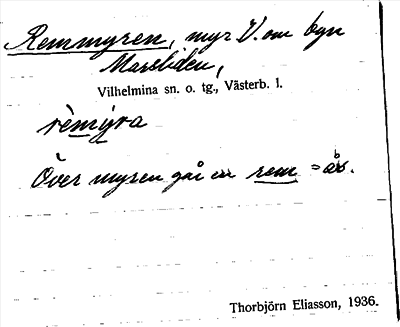 Remmyren, myr V. om byn
Marsliden,
Vilhelmina sn. o. tg., Västerb. l.
rèmýra
Över myren går en rem =
Thorbjörn Eliasson, 1936.